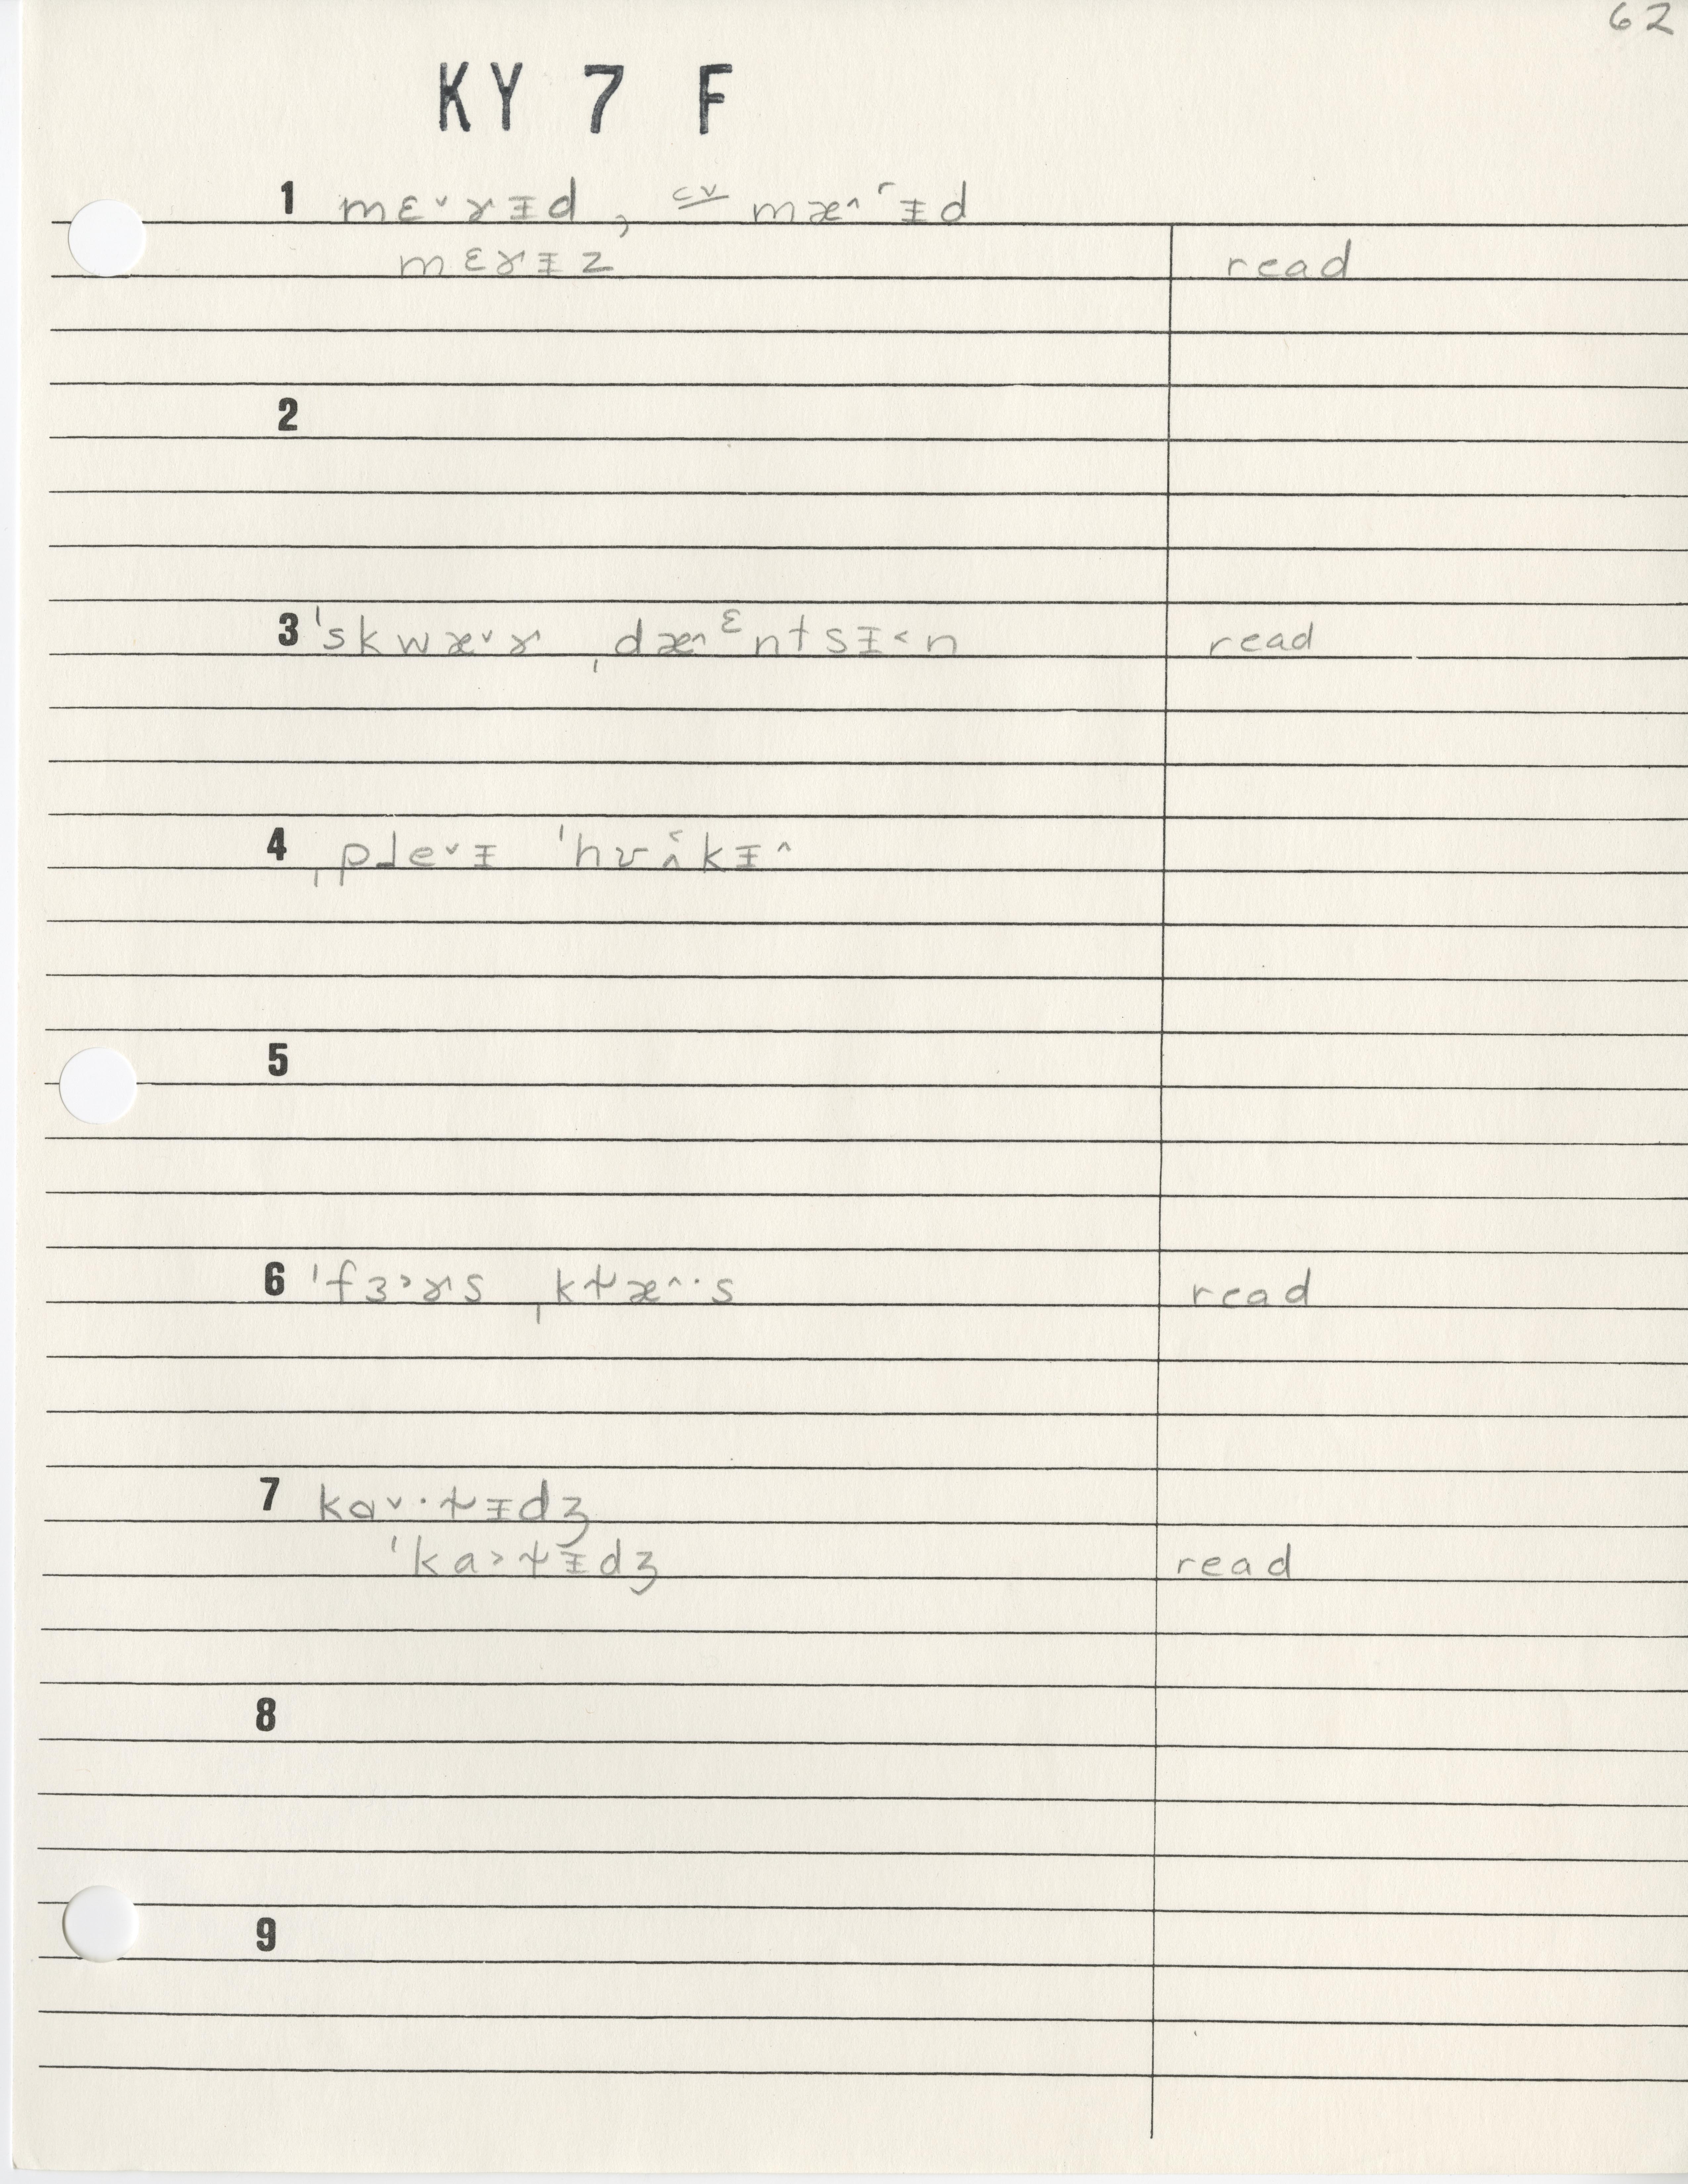 62
KY 7 F
1 mɛ˅ɤɪ̵d , cv mæ˄ ́ɪ̵d
mɛɤɪ̵z read
2
3 ˈskwæ˅ɤ ˌdæ˄ᵋntsɪ̵˂n read
4 ˌple˅ɪ̵
5
6 ˈfɜ˃ɤs ˌkɫæ˄·s read
7 kɑ˅·ɫɪ̵dʒ
ˈka˃ɫɪ̵dʒ read
8
9